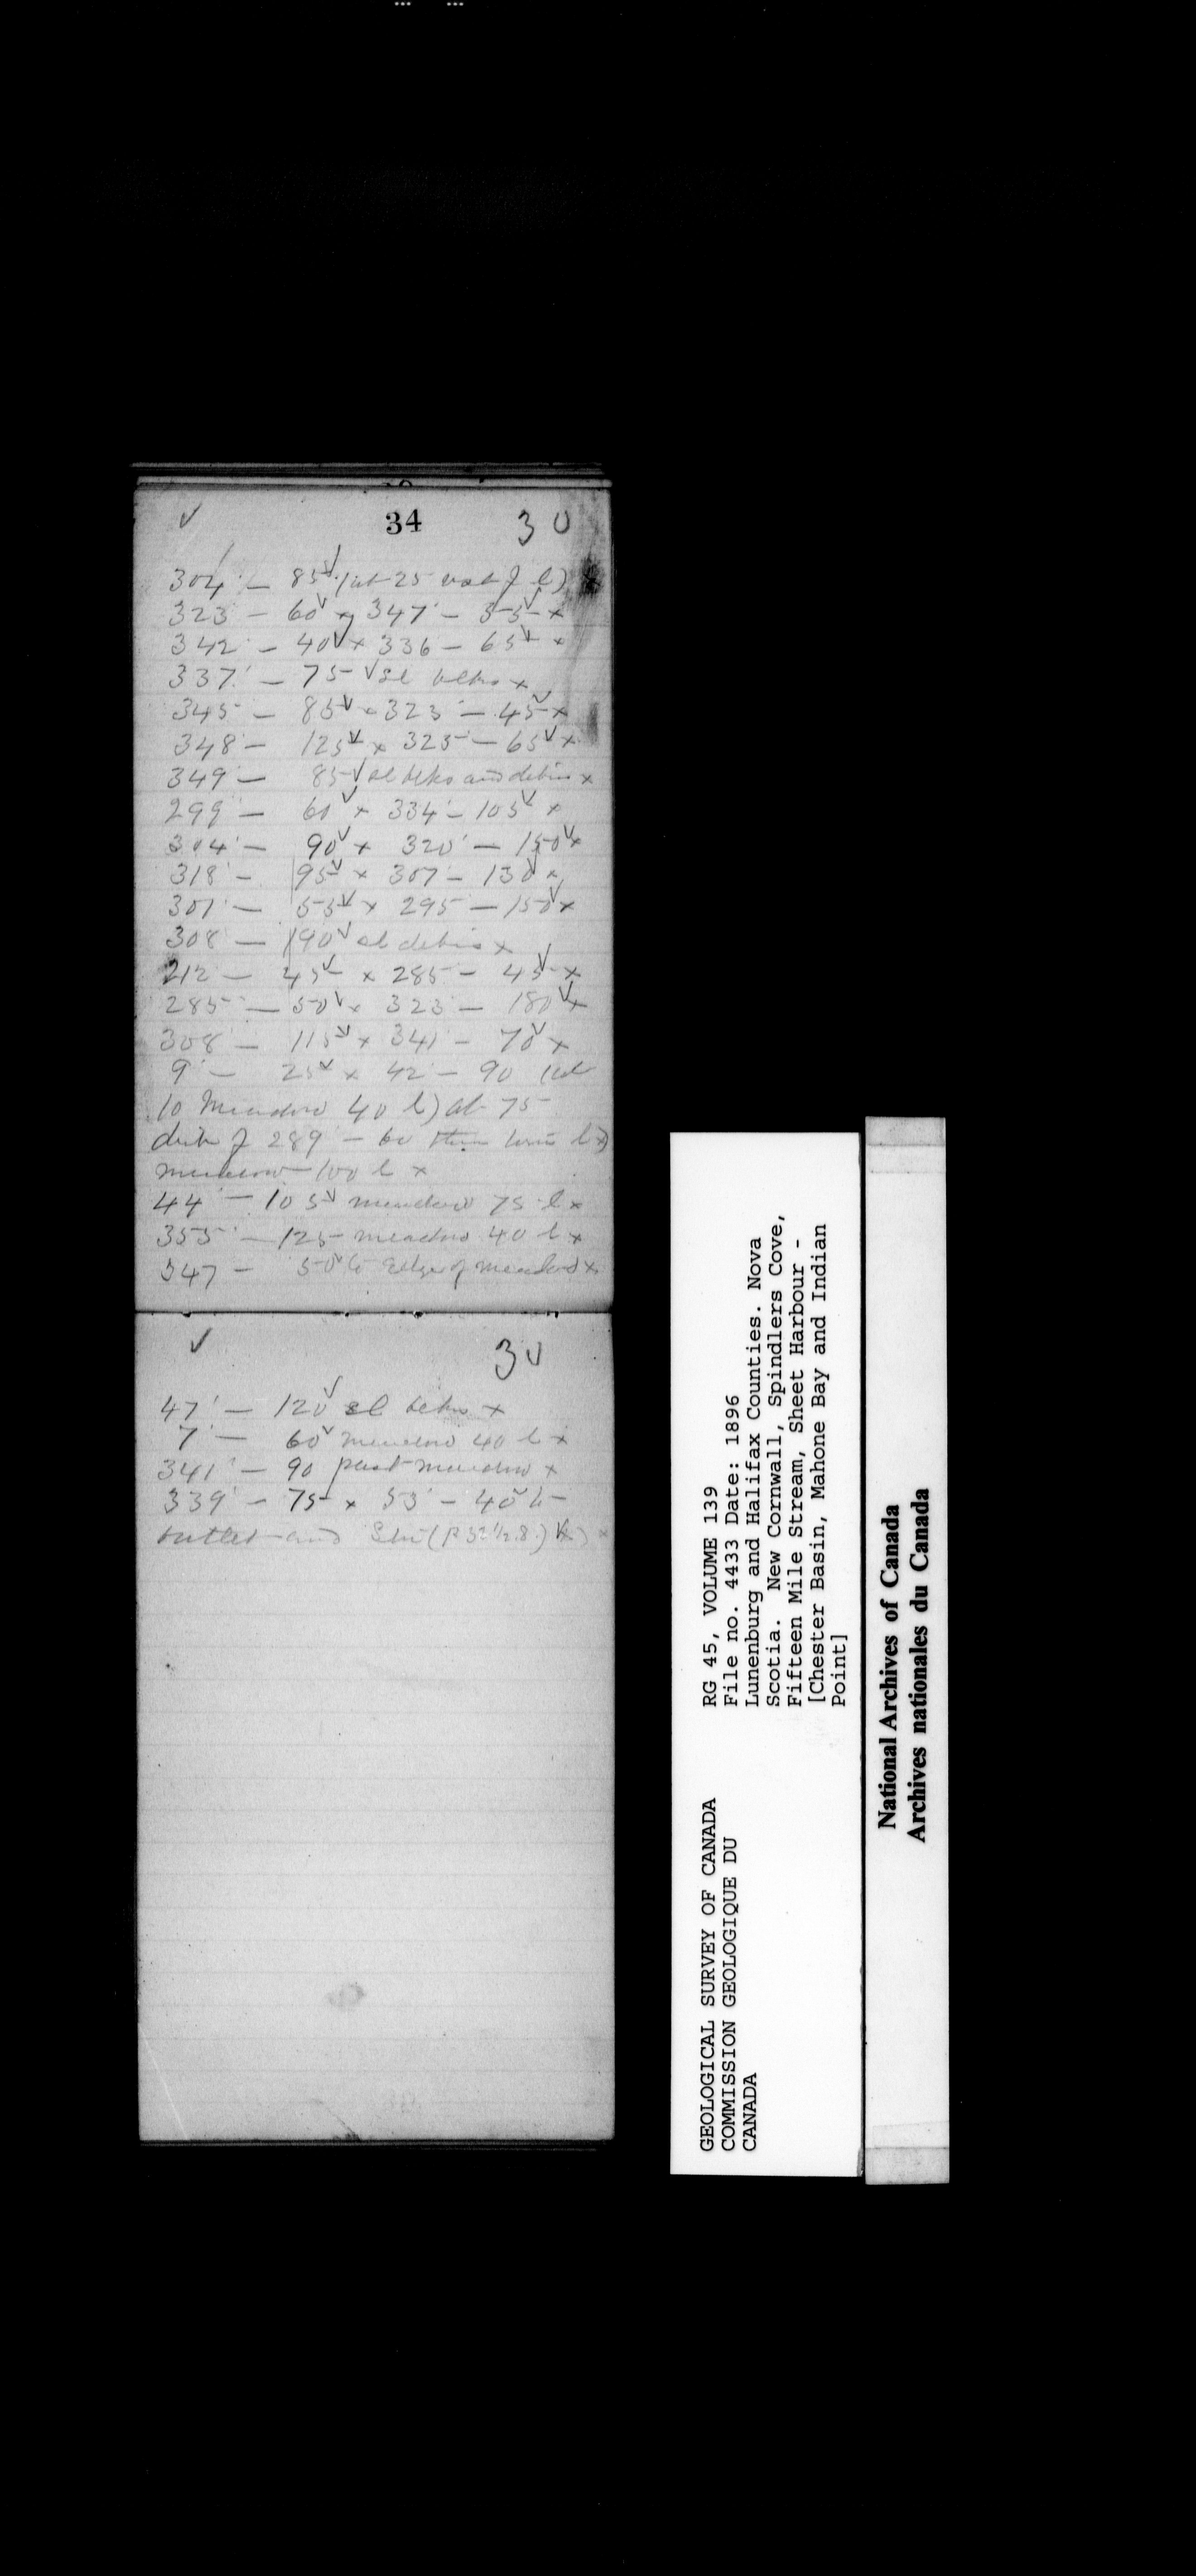 ✓ 34 30
304 — 85 ✓ (at 25 ) x
323 — 60 ✓ x 347 — 55 ✓ x
342 — 40 ✓ x 336 — 65 ✓ x
337 — 75 ✓ sl blks x
345 — 85 ✓ x 323 — 45 ✓ x
348 — 125 ✓ x 325 — 65 ✓ x
349 — 85 ✓ sl blks and debris x
299 — 60 ✓ x 334 — 105 ✓ x
304 — 90 ✓ x 320 — 150 ✓ x
318 — 95 ✓ x 307 — 130 ✓ x
301 — 55 ✓ x 295 — 150 ✓ x
308 — 190 ✓ sl debris x
212 — 45 ✓ x 285 — 45 ✓ x
285 — 50 ✓ x 323 — 180 ✓ x
308 — 115 ✓ x 341 — 70 ✓ x
9 — 25 ✓ x 42 — 90 (at
10 meadow 40 l) at 75
289 — 60
meadow 100 l x
44 — 105 ✓ meadow 75 l x
355 — 125 meadow 40 l x
347 — 50 ✓ to edge of meadow x
✓ 30
47 — 120 ✓ sl debris x
7 — 60 ✓ meadow 40 l x
341 — 90 past meadow x
339 — 75 x 53 — 40 ✓ to
outlet and
RG 45, VOLUME 139
File no. 4433 Date: 1896
Lunenburg and Halifax Counties. Nova
Scotia. New Cornwall, Spindlers Cove,
Fifteen Mile Stream, Sheet Harbour -
[Chester Basin, Mahone Bay and Indian
Point]
GEOLOGICAL SURVEY OF CANADA
COMMISSION GEOLOGIQUE DU
CANADA
National Archives of Canada
Archives nationales du Canada